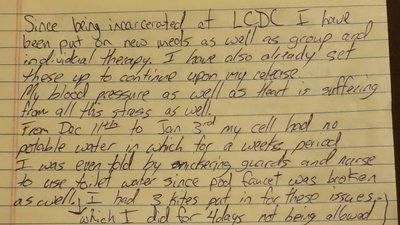 Since being incarcerated at LCDC I have
been put on new meds as well as group and
individual therapy. I have also already set
these up to continue upon my release.
My blood pressure as well as Heart is suffering
from all this stress as well.
From Dec 11th to Jan 3rd my cell had no
potable water in which for a weeks period
I was even told by snickering guards and nurse
to use toilet water since pod faucet was broken
as well. I had 3 kites put in for these issues.
which I did for 4 days not being allowed